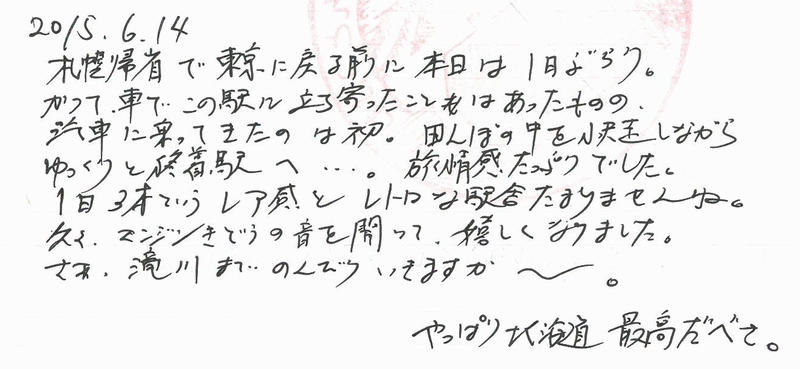 2015.6.14
札幌帰省で東京に戻る前に本日は1日ぶらり。
かつて、車でこの駅に立ち寄ったことはあったものの、
汽車に乗ってきたのは初。田んぼの中を しながら
ゆっくりと終着駅へ…。旅情感たっぷりでした。
1日3本というレア感とレトロな駅舎たまりませんね。
久々、エンジンきどうの音を聞って、嬉しくなりました。
さあ、滝川までのんびりいきますか〜。
やっぱり北海道最高だべさ。